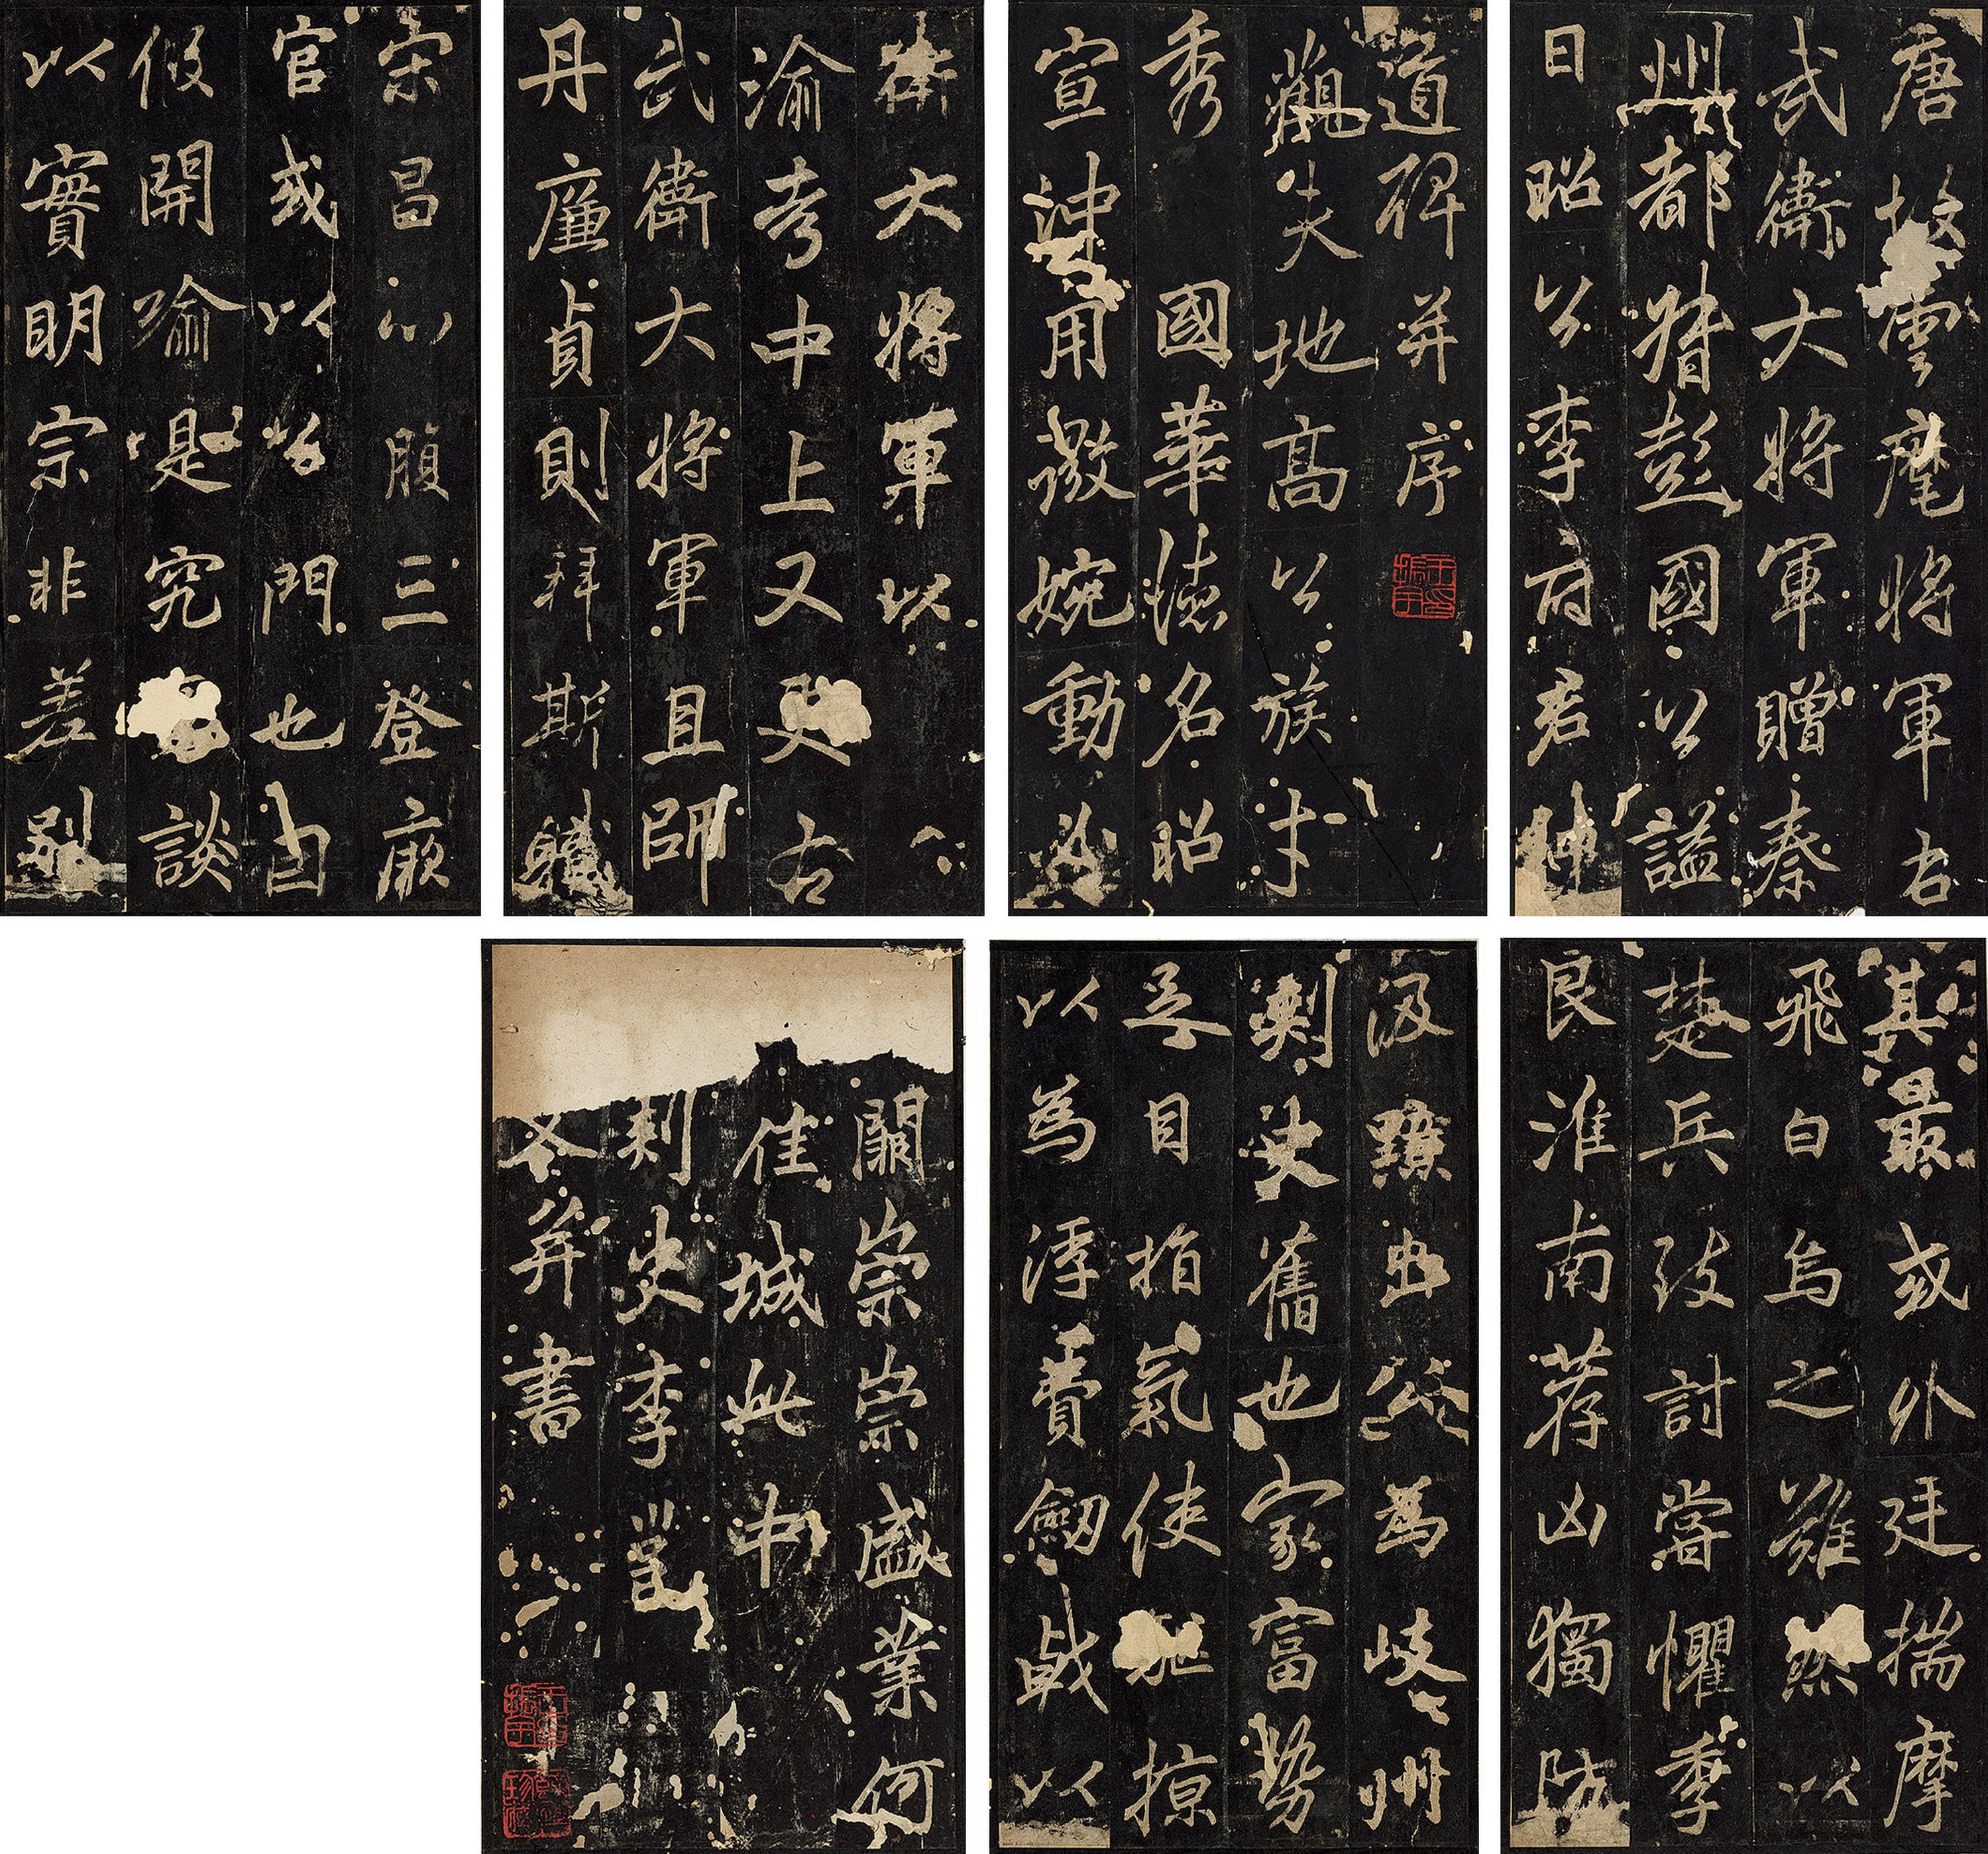 唐故雲麾將軍右
武衛大將軍贈秦
州都督彭國公謚
曰昭公李府君神
道碑并序
觀夫地高公族才
秀國華德名昭
宣沖用微婉動必
衛大將軍以
渝考中上又更右
武衛大將軍且師
丹廉貞則拜斯職
宗昌心腹三登厥
官或以公門也固
假開喻是究談
以實明宗非差別
其最或外廷揣摩
飛白烏之雖然以
楚兵致討嘗懼季
良淮南荐凶獨防
汲黯出公為岐州
刺史舊也家富勢
足目指氣使驅掠
以為浮費劒戟以
闕崇崇盛業何
佳城此中
刺史李邕
文并書